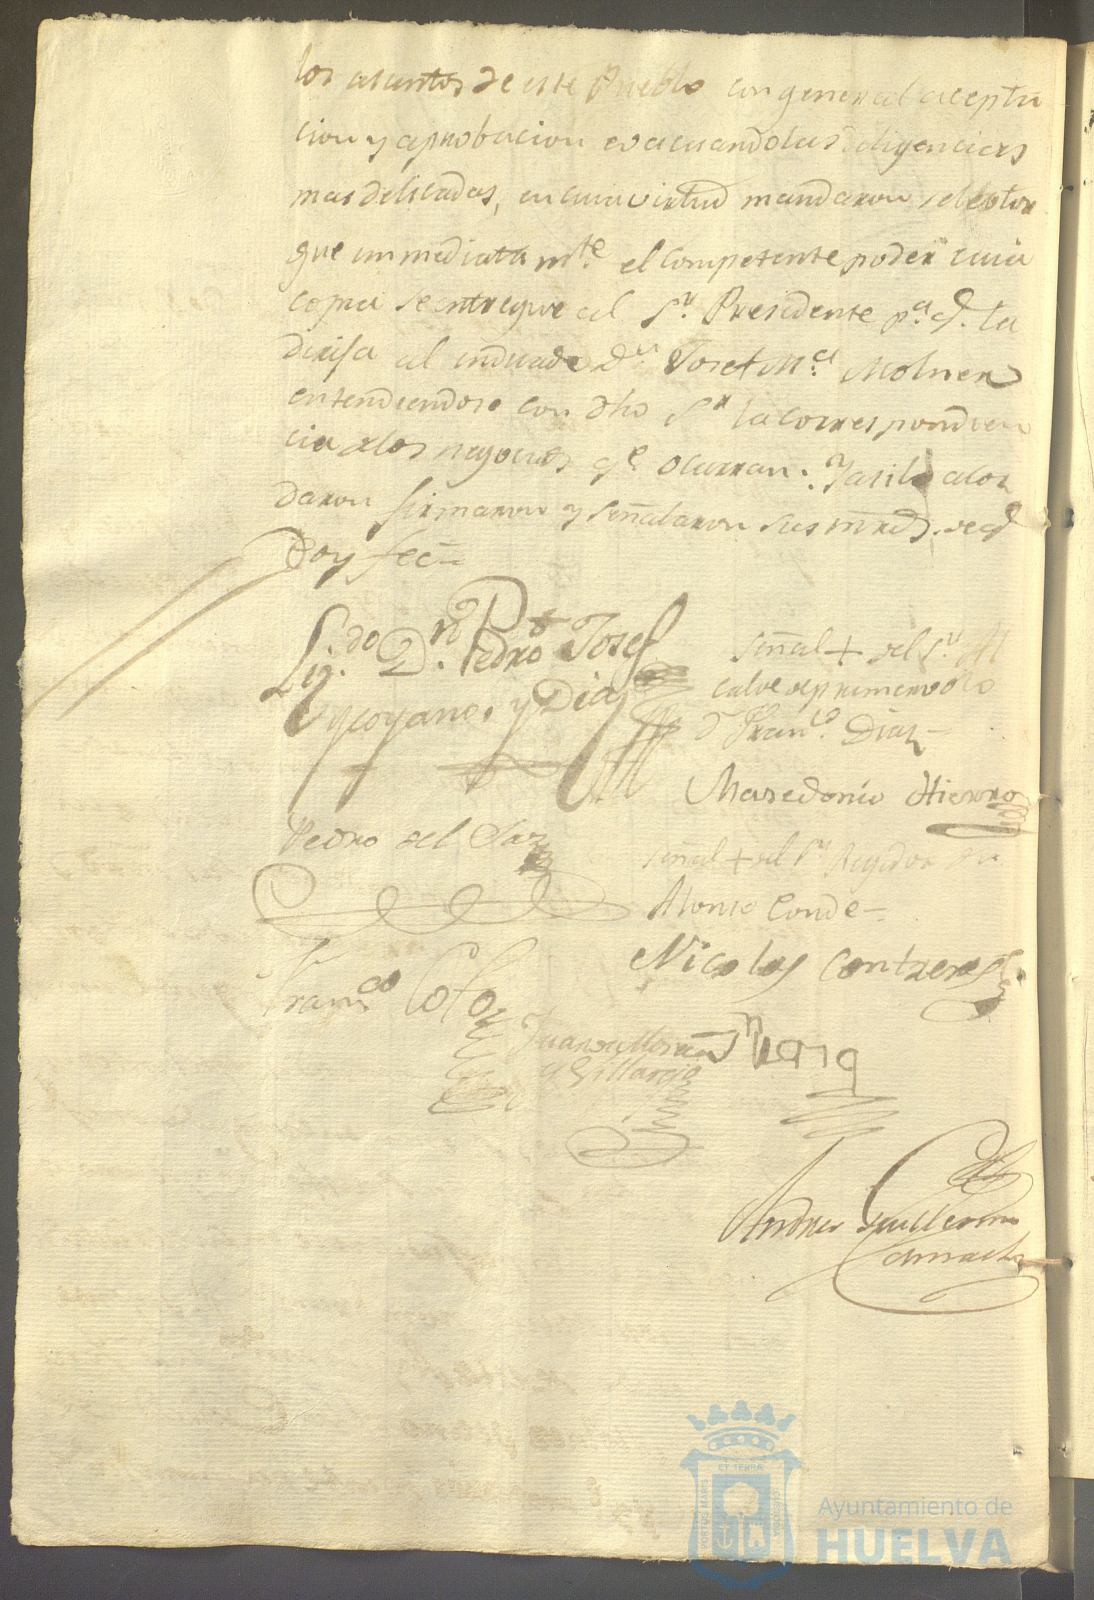 los asuntos de este Pueblo con general acepta
cion y aprobacion evacuando las diligencias
mas delicadas, en cuia virtud mandaron se le otor
gue immediatamte. el competente poder cuia
copia se entregue al Sr. Presidente pa. q. la
dirija al indicado Dn. Josef Ma. Molner
entendiendose con dho Sr la correspondien
cia de los negocios qe. ocurran. Y asi lo acor
daron firmaron y señalaron sus mrds. de q
Doy fee =
Ligdo. Dn. Pedro Josef
y Diaz
señal + del Sr. Al
calde de primer voto
d Franco. Diaz =
Masedonio Hierro
Pedro del Saz
señal + del Sr Regidor
Alonso Conde =
Nicolas Contreras
Franco Coto
Juan
Andres Guillermo
Camacho
ET TERRAE
PORTUS MARIS
CUSTODIA
Ayuntamiento de
HUELVA